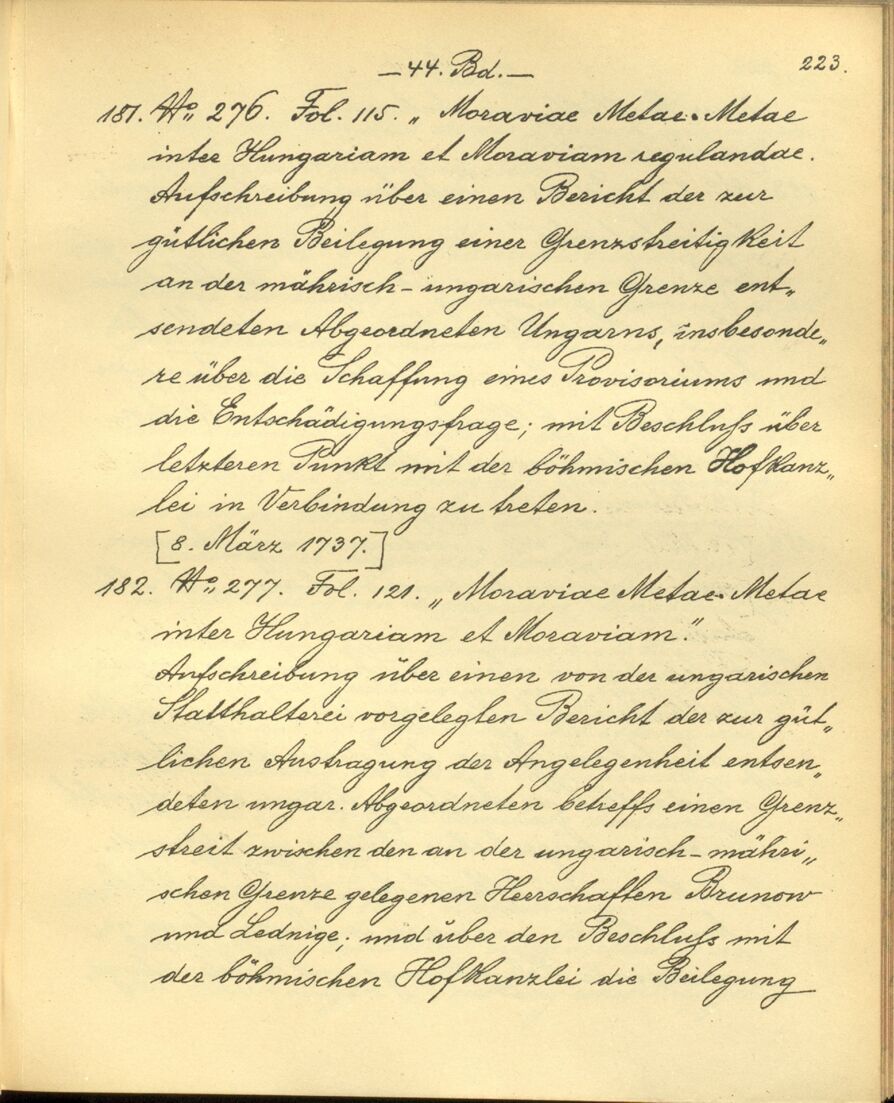 — 44. Bd. —
223.
181. No. 276. Fol. 115. „Moraviae Metae. Metae
inter Hungariam et Moraviam regulandae.
Aufschreibung über einen Bericht der zur
gütlichen Beilegung einer Grenzstreitigkeit
an der mährisch-ungarischen Grenze ent„
sendeten Abgeordneten Ungarns, insbesonde„
re über die Schaffung eines Provisoriums und
die Entschädigungsfrage; mit Beschluss über
letzteren Punkt mit der böhmischen Hofkanz„
lei in Verbindung zu treten.
[8. März 1737.]
182. No. 277. Fol. 121. „Moraviae Metae. Metae
inter Hungariam et Moraviam."
Aufschreibung über einen von der ungarischen
Statthalterei vorgelegten Bericht der zur güt„
lichen Austragung der Angelegenheit entsen„
deten ungar. Abgeordneten betreffs einen Grenz„
streit zwischen den an der ungarisch-mähri„
schen Grenze gelegenen Herrschaften Brunow
und Lednige; und über den Beschluss mit
der böhmischen Hofkanzlei die Beilegung